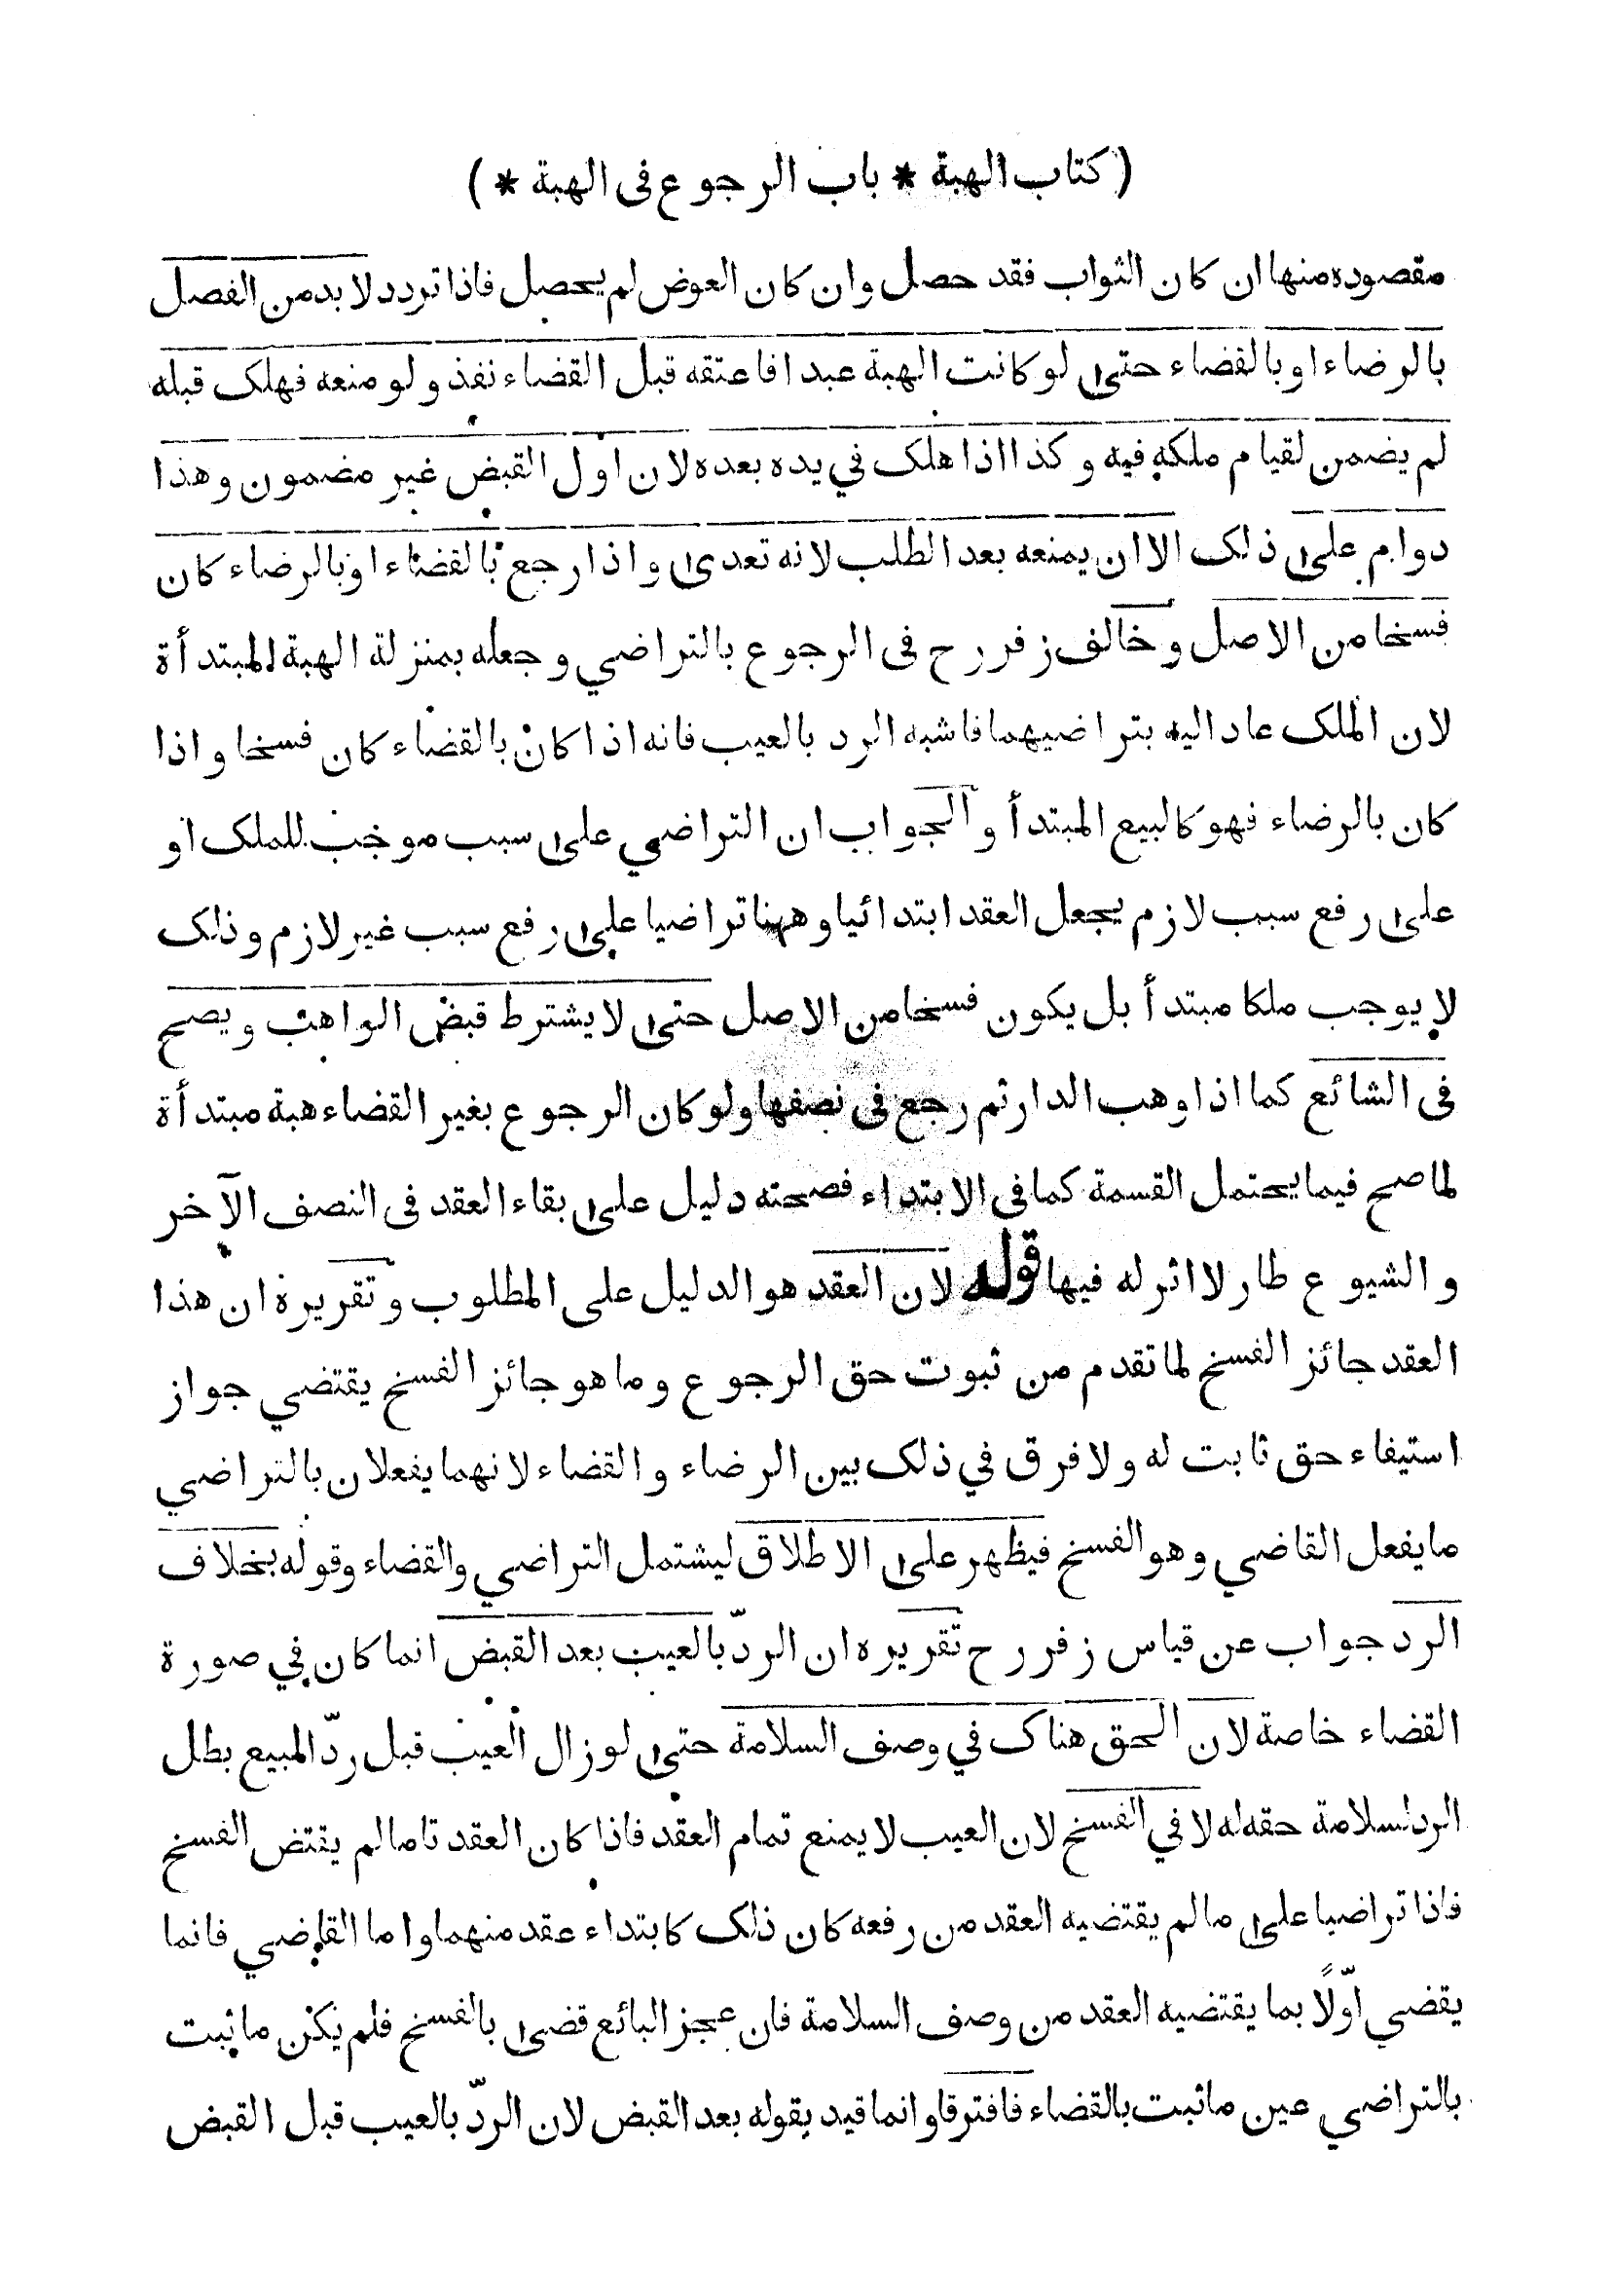 ( كتاب الهبة * باب الرجوع فى الهبة * )
مقصوده منها ان كان الثواب فقد حصل وان كان العوض لم يحصل فاذا تردد لا بد من الفصل
بالرضاء او بالقضاء حتى لو كانت الهبة عبدا فاعتقه قبل القضاء نفذ ولو منعه فهلك قبله
لم يضمن لقيام ملكه فيه وكذا اذا هلك في يده بعده لان اول القبض غير مضمون وهذا
دوام على ذلك الا ان يمنعه بعد الطلب لانه تعدى واذا رجع بالقضاء او بالرضاء كان
فسخا من الاصل وخالف زفر رح فى الرجوع بالتراضي وجعله بمنزلة الهبة المبتدأة
لان الملك عاد اليه بتراضيهما فاشبه الرد بالعيب فانه اذا كان بالقضاء كان فسخا واذا
كان بالرضاء فهو كالبيع المبتدأ والجواب ان التراضي على سبب موجب للملك او
على رفع سبب لازم يجعل العقد ابتدائيا وههنا تراضيا على رفع سبب غير لازم وذلك
لا يوجب ملكا مبتدأ بل يكون فسخا من الاصل حتى لا يشترط قبض الواهب ويصح
فى الشائع كما اذا وهب الدار ثم رجع فى نصفها ولو كان الرجوع بغير القضاء هبة مبتدأة
لما صح فيما يحتمل القسمة كما فى الابتداء فصحته دليل على بقاء العقد فى النصف الآخر
والشيوع طار لا اثر له فيها قوله لان العقد هو الدليل على المطلوب وتقريره ان هذا
العقد جائز الفسخ لما تقدم من ثبوت حق الرجوع وما هو جائز الفسخ يقتضي جواز
استيفاء حق ثابت له ولا فرق في ذلك بين الرضاء والقضاء لانهما يفعلان بالتراضي
ما يفعل القاضي وهو الفسخ فيظهر على الاطلاق ليشتمل التراضي والقضاء وقوله بخلاف
الرد جواب عن قياس زفر رح تقريره ان الردّ بالعيب بعد القبض انما كان في صورة
القضاء خاصة لان الحق هناك في وصف السلامة حتى لو زال العيب قبل ردّ المبيع بطل
الرد لسلامة حقه له لا في الفسخ لان العيب لا يمنع تمام العقد فاذا كان العقد تاما لم يقتض الفسخ
فاذا تراضيا على ما لم يقتضيه العقد من رفعه كان ذلك كابتداء عقد منهما واما القاضي فانما
يقضي اوّلًا بما يقتضيه العقد من وصف السلامة فان عجز البائع قضى بالفسخ فلم يكن ما ثبت
بالتراضي عين ما ثبت بالقضاء فافترقا وانما قيد بقوله بعد القبض لان الردّ بالعيب قبل القبض